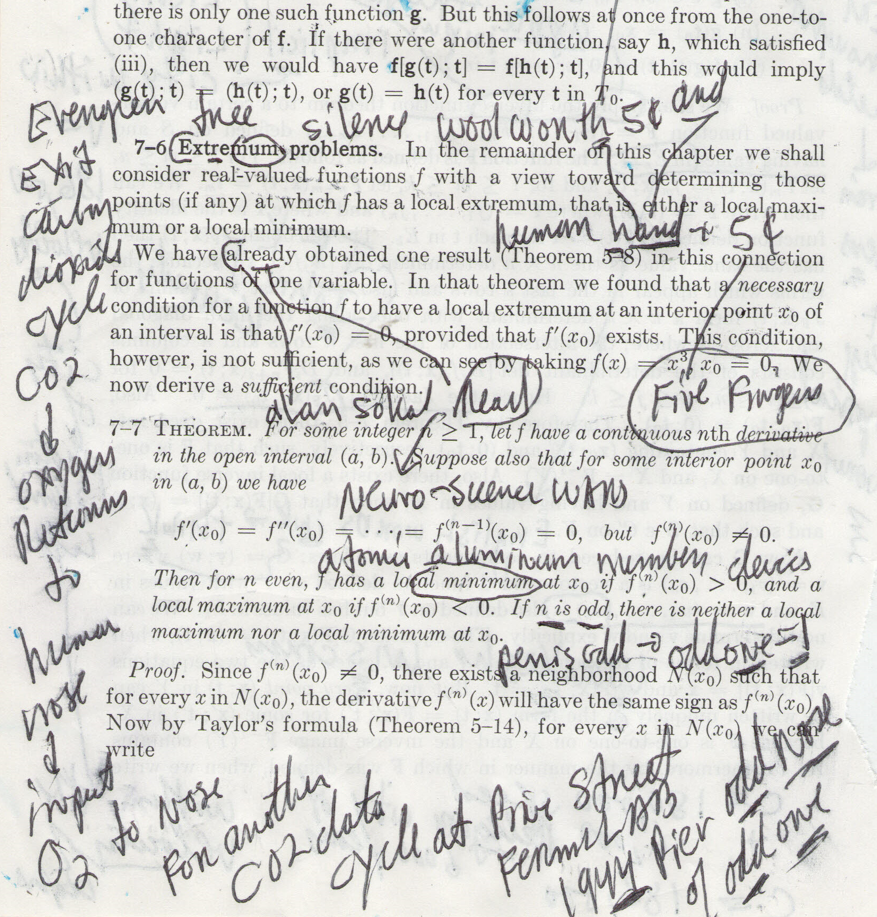 there is only one such function g. But this follows at once from the one-to-
one character of f. If there were another function, say h, which satisfied
(iii), then we would have f[g(t); t] = f[h(t); t], and this would imply
(g(t); t) = (h(t); t), or g(t) = h(t) for every t in T₀.
Evergreen tree silence woolworth 5¢ and
7–6 Extremum problems. In the remainder of this chapter we shall
consider real-valued functions f with a view toward determining those
points (if any) at which f has a local extremum, that is, either a local maxi-
mum or a local minimum.
human hand 5¢
We have already obtained one result (Theorem 5–8) in this connection
for functions of one variable. In that theorem we found that a necessary
condition for a function f to have a local extremum at an interior point x₀ of
an interval is that f′(x₀) = 0, provided that f′(x₀) exists. This condition,
however, is not sufficient, as we can see by taking f(x) = x³, x₀ = 0. We
now derive a sufficient condition.
alan sokal Head
Five Fingers
7–7 THEOREM. For some integer n ≥ 1, let f have a continuous nth derivative
in the open interval (a, b). Suppose also that for some interior point x₀
in (a, b) we have
Neuro-science WAW
f′(x₀) = f″(x₀) = . . . = f⁽ⁿ⁻¹⁾(x₀) = 0, but f⁽ⁿ⁾(x₀) ≠ 0.
atomic aluminum number clevis
Then for n even, f has a local minimum at x₀ if f⁽ⁿ⁾(x₀) > 0, and a
local maximum at x₀ if f⁽ⁿ⁾(x₀) < 0. If n is odd, there is neither a local
maximum nor a local minimum at x₀.
penis odd → odd one = 1
Proof. Since f⁽ⁿ⁾(x₀) ≠ 0, there exists a neighborhood N(x₀) such that
for every x in N(x₀), the derivative f⁽ⁿ⁾(x) will have the same sign as f⁽ⁿ⁾(x₀)
Now by Taylor's formula (Theorem 5–14), for every x in N(x₀) we can
write
Exit
carbon
dioxide
cycle
CO2
↓
oxygen
Returns
to
human
nose
↓
input
O2 to Nose
For another
CO2 data
cycle at Price Street
Fermi LAB
guy Pier odd Nose
of odd one